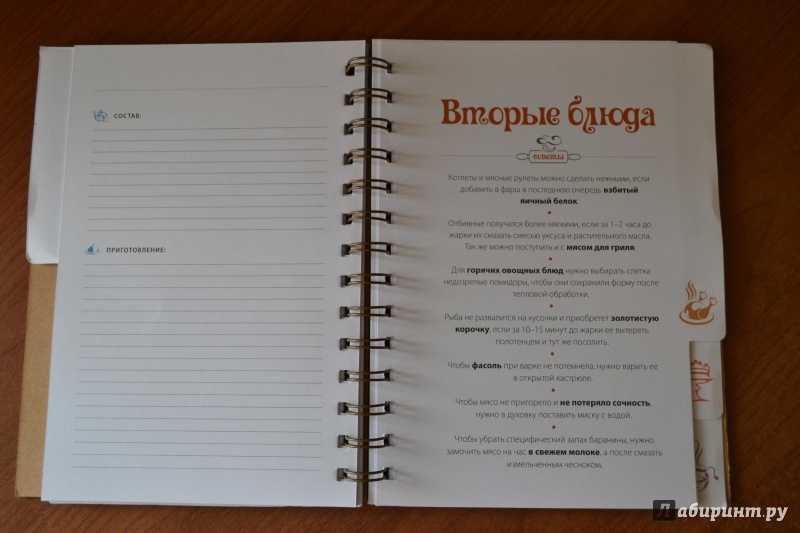 СОСТАВ:
ПРИГОТОВЛЕНИЕ:
Вторые блюда
советы
Котлеты и мясные рулеты можно сделать нежными, если
добавить в фарш в последнюю очередь взбитый
яичный белок.
Отбивные получатся более мягкими, если за 1–2 часа до
жарки их смазать смесью уксуса и растительного масла.
Так же можно поступить и с мясом для гриля.
Для горячих овощных блюд нужно выбирать слегка
недозрелые помидоры, чтобы они сохранили форму после
тепловой обработки.
Рыба не развалится на кусочки и приобретет золотистую
корочку, если за 10–15 минут до жарки ее вытереть
полотенцем и тут же посолить.
Чтобы фасоль при варке не потемнела, нужно варить ее
в открытой кастрюле.
Чтобы мясо не пригорело и не потеряло сочность,
нужно в духовку поставить миску с водой.
Чтобы убрать специфический запах баранины, нужно
замочить мясо на час в свежем молоке, а после смазать
измельченным чесноком.
Лабиринт.ру